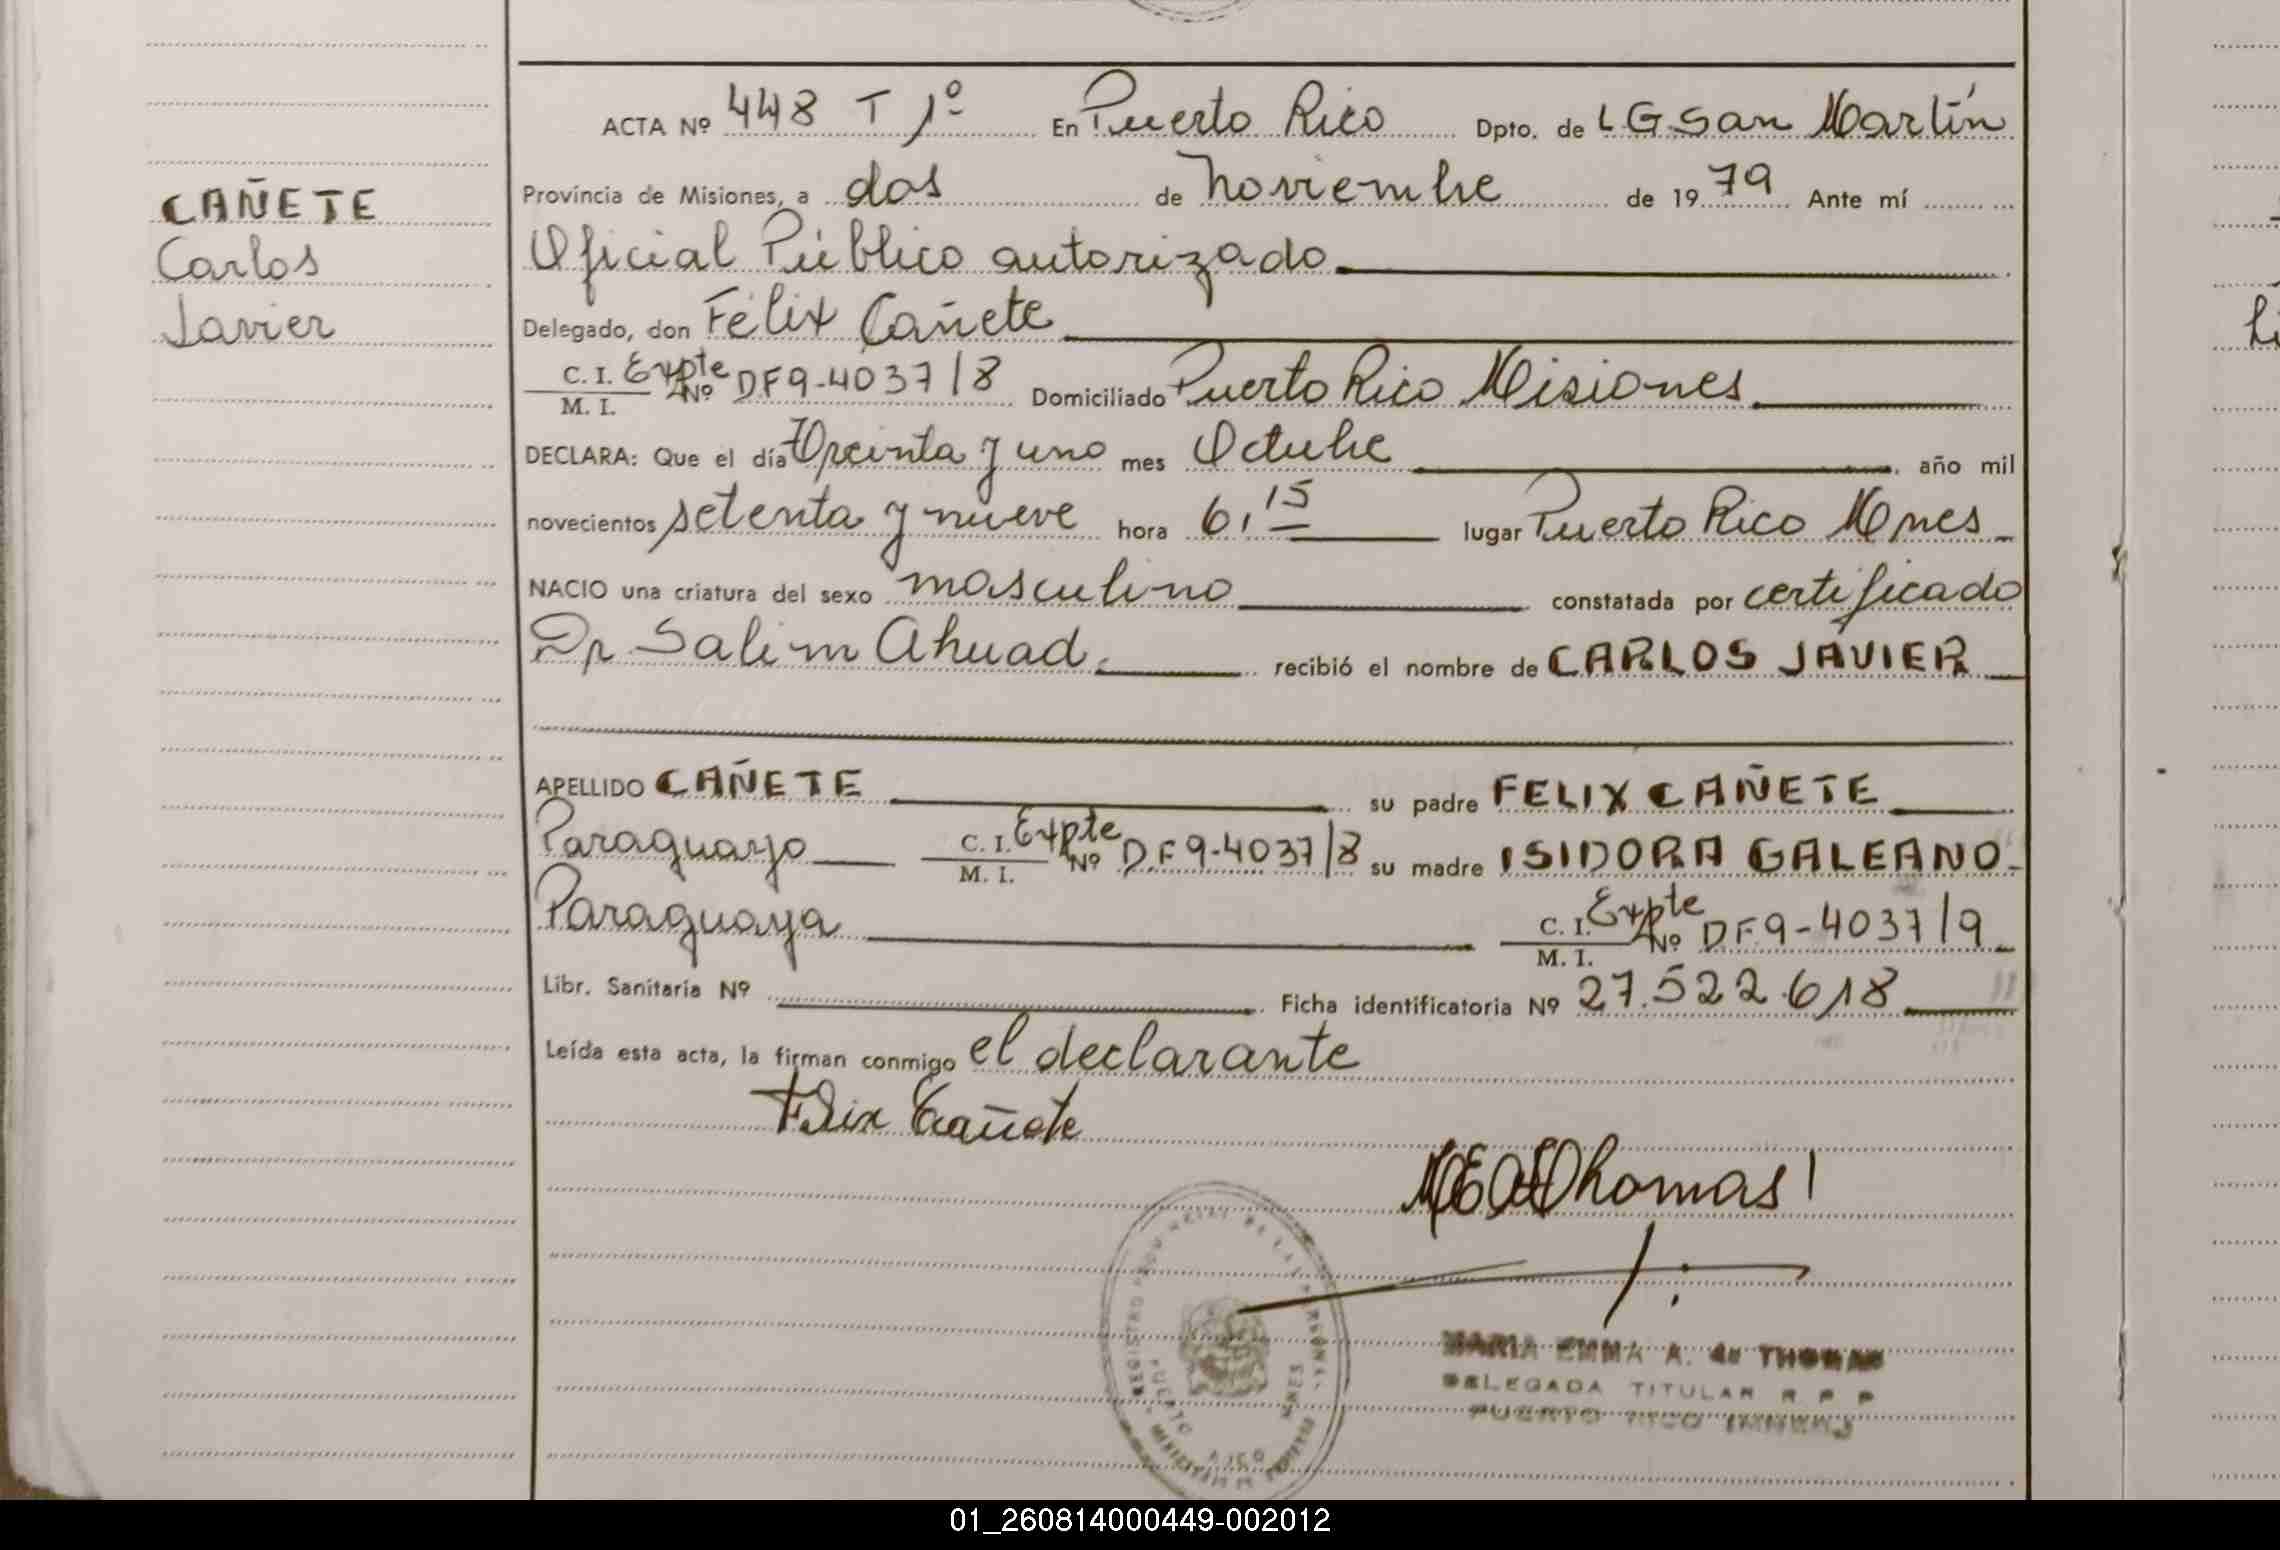 CAÑETE
Carlos
Javier
ACTA Nº 448 T 1º En Puerto Rico Dpto. de L.G.San Martín
Provincia de Misiones, a dos de Noviembre de 1979 Ante mí
Oficial Público autorizado
Delegado, don Félix Cañete
C. I. Expte Nº DF9-4037/8 Domiciliado Puerto Rico Misiones
M. I.
DECLARA: Que el día Treinta y uno mes Octubre año mil
novecientos setenta y nueve hora 6,15 lugar Puerto Rico Mnes
NACIO una criatura del sexo masculino constatada por certificado
Dr Salim Ahuad. recibió el nombre de CARLOS JAVIER
APELLIDO CAÑETE su padre FELIX CAÑETE
Paraguayo C. I. Expte Nº D.F9-4037/8 su madre ISIDORA GALEANO-
M. I.
Paraguaya C. I. Expte Nº DF9-4037/9
M. I.
Libr. Sanitaria Nº Ficha identificatoria Nº 27.522.618
Leída esta acta, la firman conmigo el declarante
Felix Cañete
Thomas
REGISTRO PROVINCIAL DE LAS PERSONAS
PUERTO RICO MNES
MARIA EMMA A. de THOMAS
DELEGADA TITULAR R P P
PUERTO RICO (MNES)
01_260814000449-002012